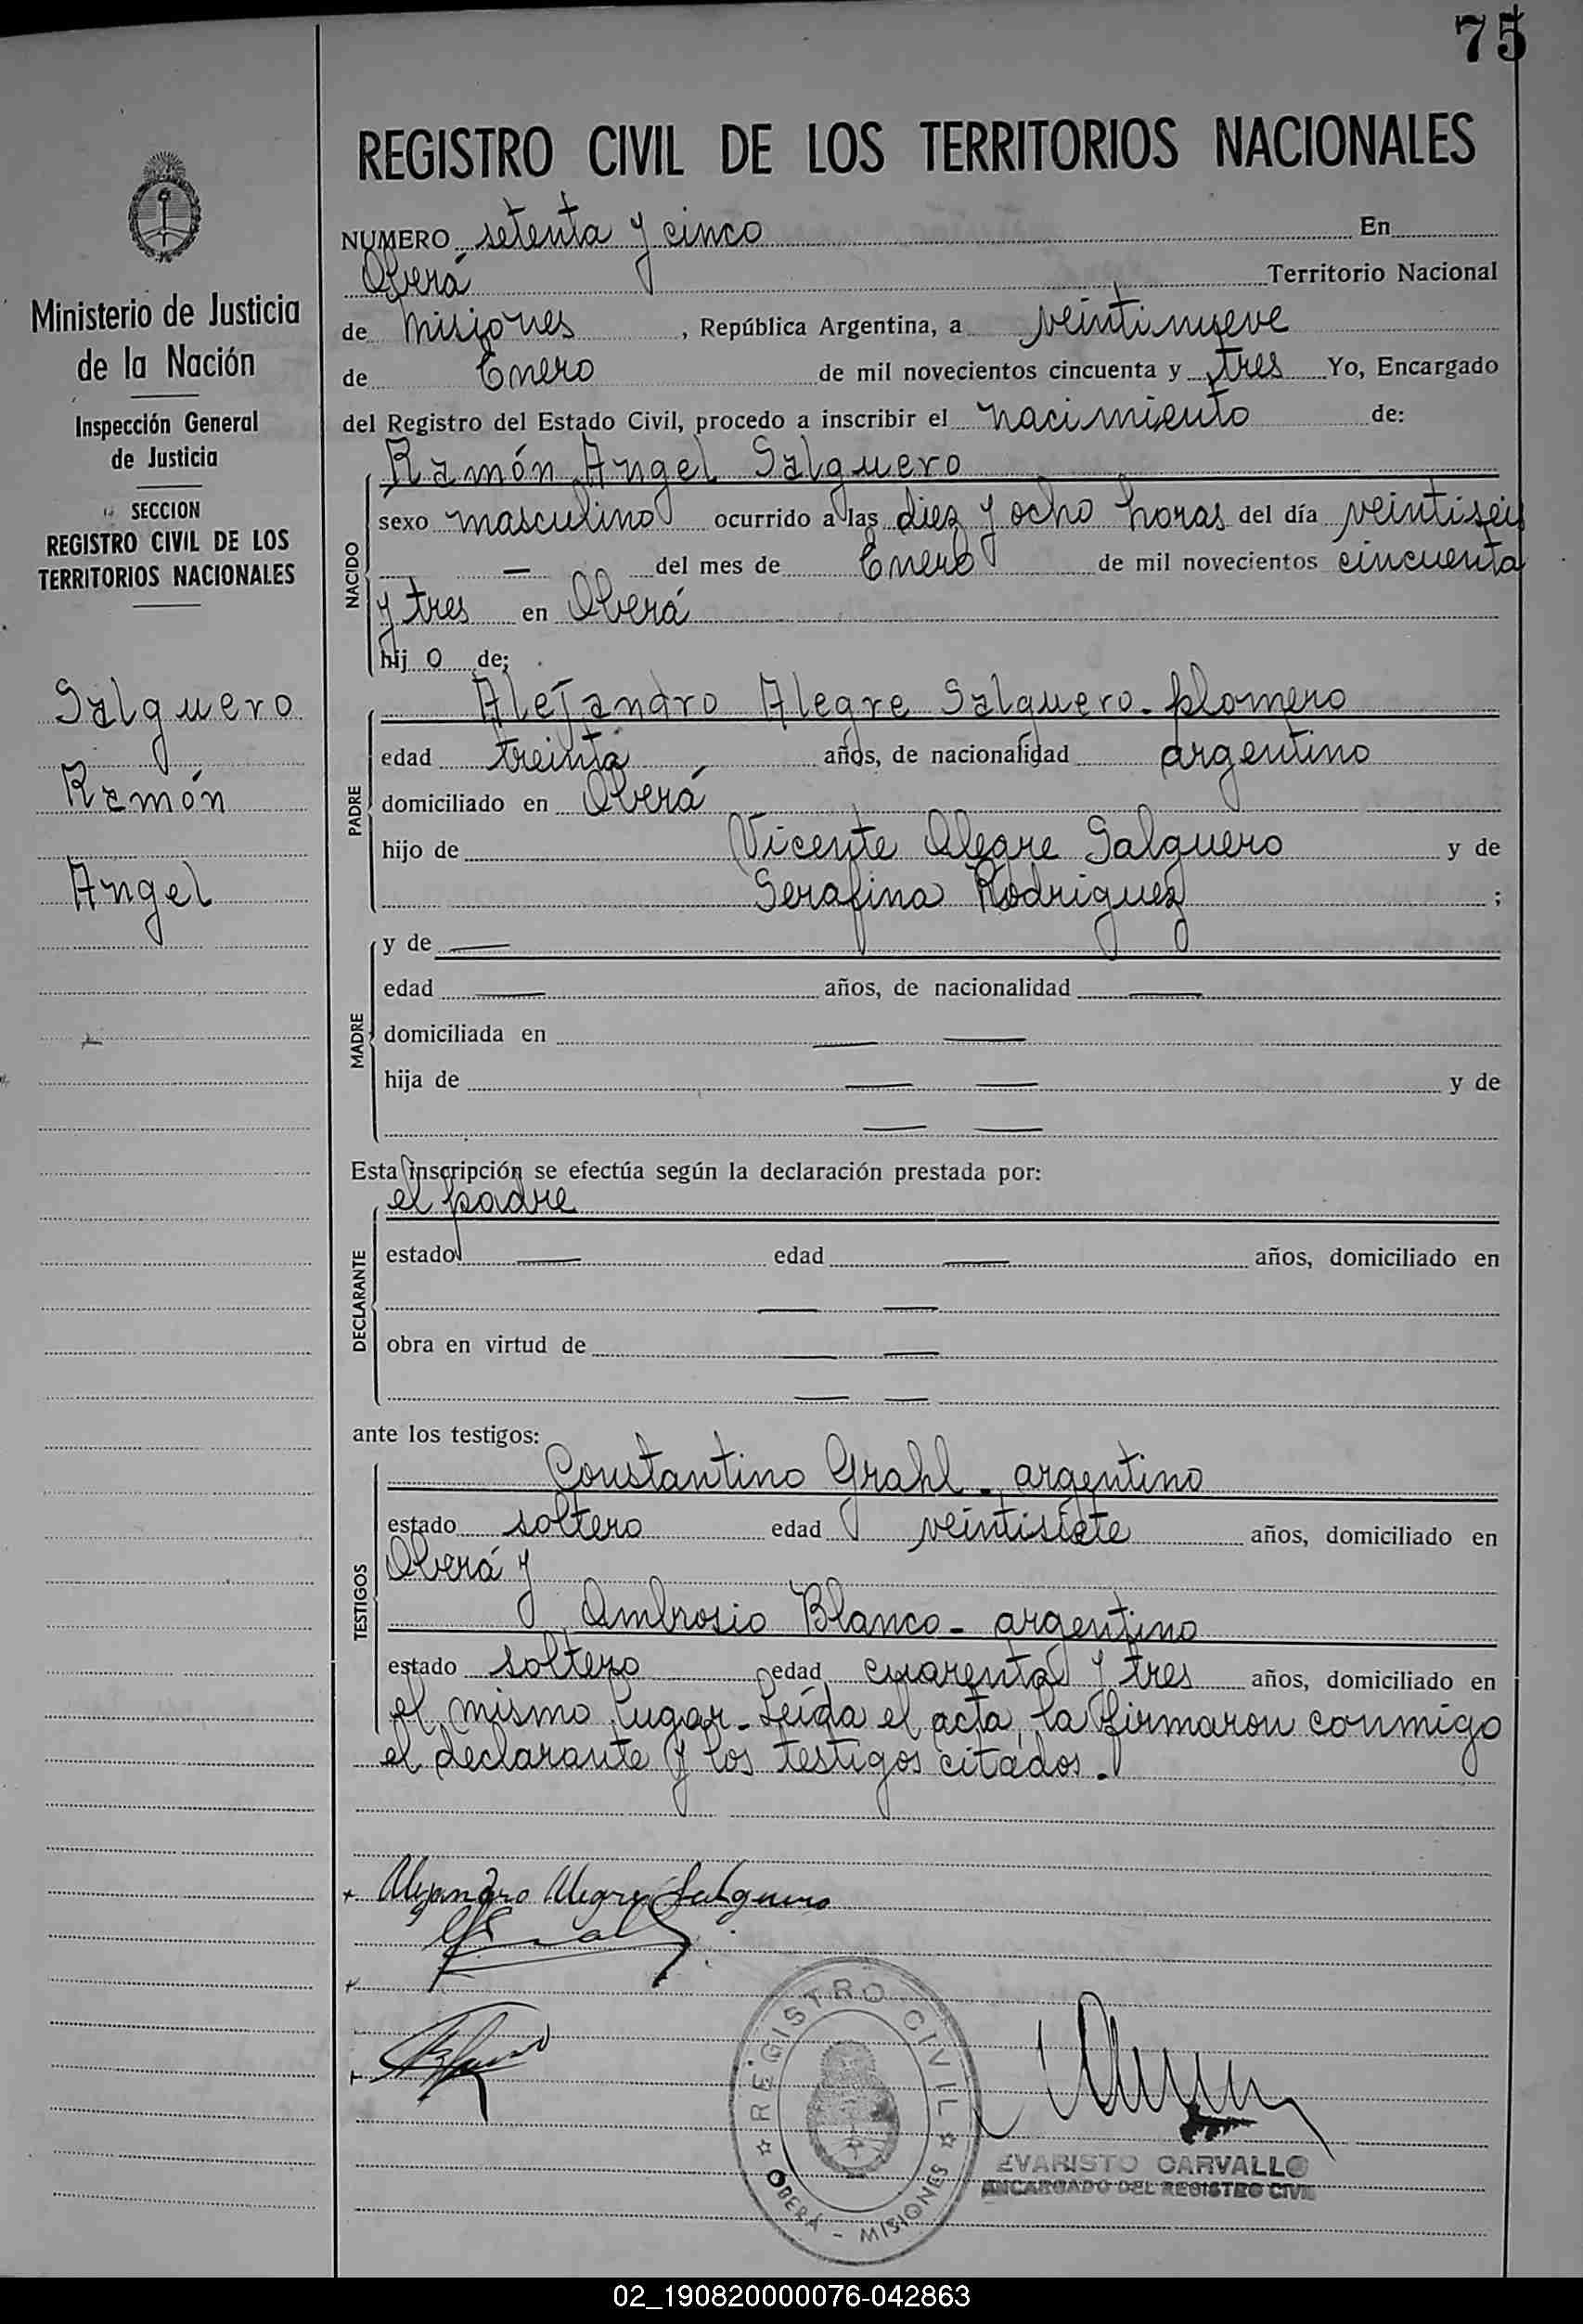 75
REGISTRO CIVIL DE LOS TERRITORIOS NACIONALES
Ministerio de Justicia
de la Nación
Inspección General
de Justicia
SECCION
REGISTRO CIVIL DE LOS
TERRITORIOS NACIONALES
Salguero
Ramón
Angel
NUMERO setenta y cinco En
Oberá Territorio Nacional
de Misiones, República Argentina, a veintinueve
de Enero de mil novecientos cincuenta y tres Yo, Encargado
del Registro del Estado Civil, procedo a inscribir el nacimiento de:
NACIDO
Ramón Angel Salguero
sexo masculino ocurrido a las diez y ocho horas del día veintiseis
— del mes de Enero de mil novecientos cincuenta
y tres en Oberá
hij o de;
PADRE
Alejandro Alegre Salguero - plomero
edad treinta años, de nacionalidad argentino
domiciliado en Oberá
hijo de Vicente Alegre Salguero y de
Serafina Rodriguez ;
MADRE
y de —
edad — años, de nacionalidad —
domiciliada en — —
hija de — — y de
— —
Esta inscripción se efectúa según la declaración prestada por:
DECLARANTE
el padre
estado — edad — años, domiciliado en
— —
obra en virtud de — —
— —
ante los testigos:
TESTIGOS
Constantino Grahl - argentino
estado soltero edad veintisiete años, domiciliado en
Oberá y
Ambrosio Blanco - argentino
estado soltero edad cuarenta y tres años, domiciliado en
el mismo lugar - Leída el acta, la firmaron conmigo
el declarante y los testigos citados.
Alejandro Alegre Salguero
REGISTRO CIVIL
OBERÁ - MISIONES
EVARISTO CARVALLO
ENCARGADO DEL REGISTRO CIVIL
02_190820000076-042863